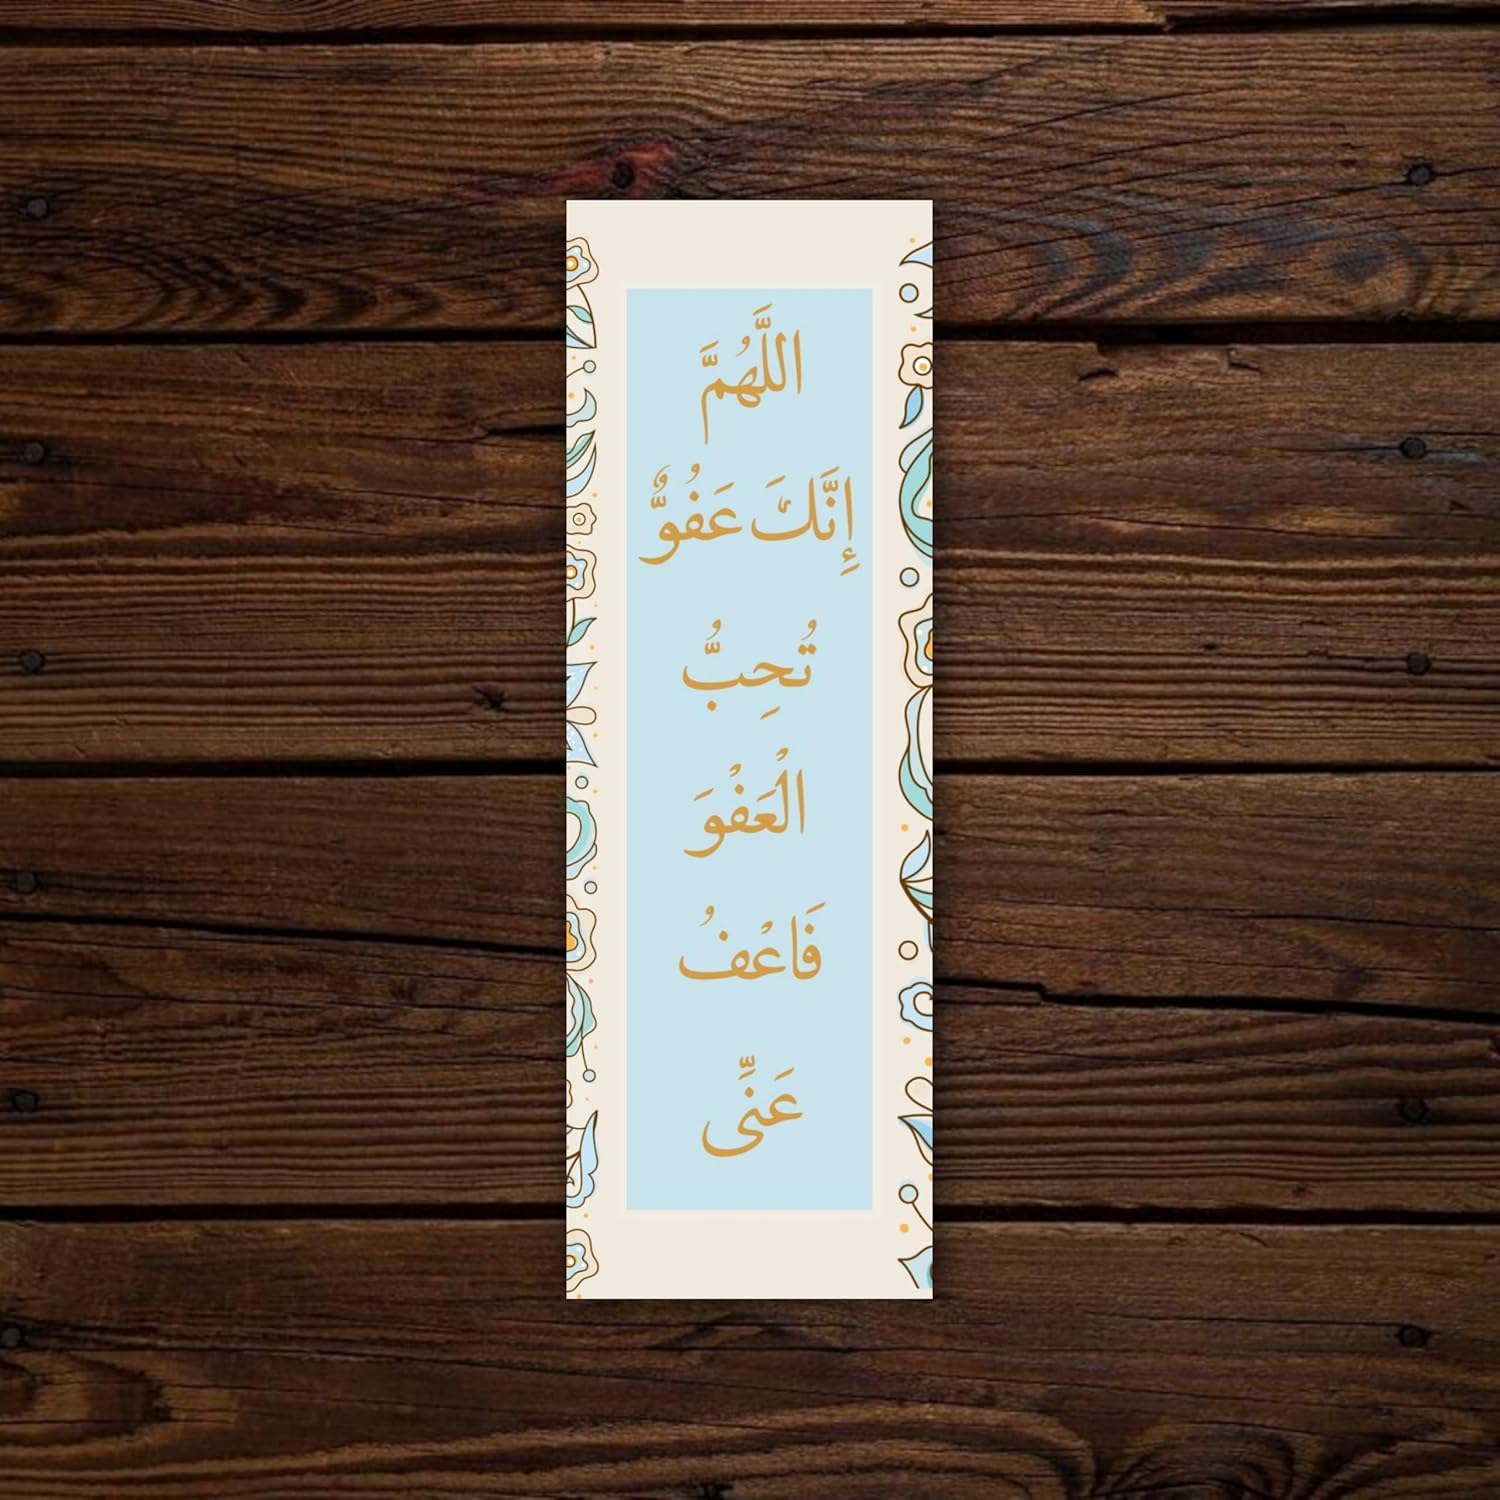 اللَّهُمَّ
إِنَّكَ عَفُوٌّ
تُحِبُّ
الْعَفْوَ
فَاعْفُ
عَنِّى